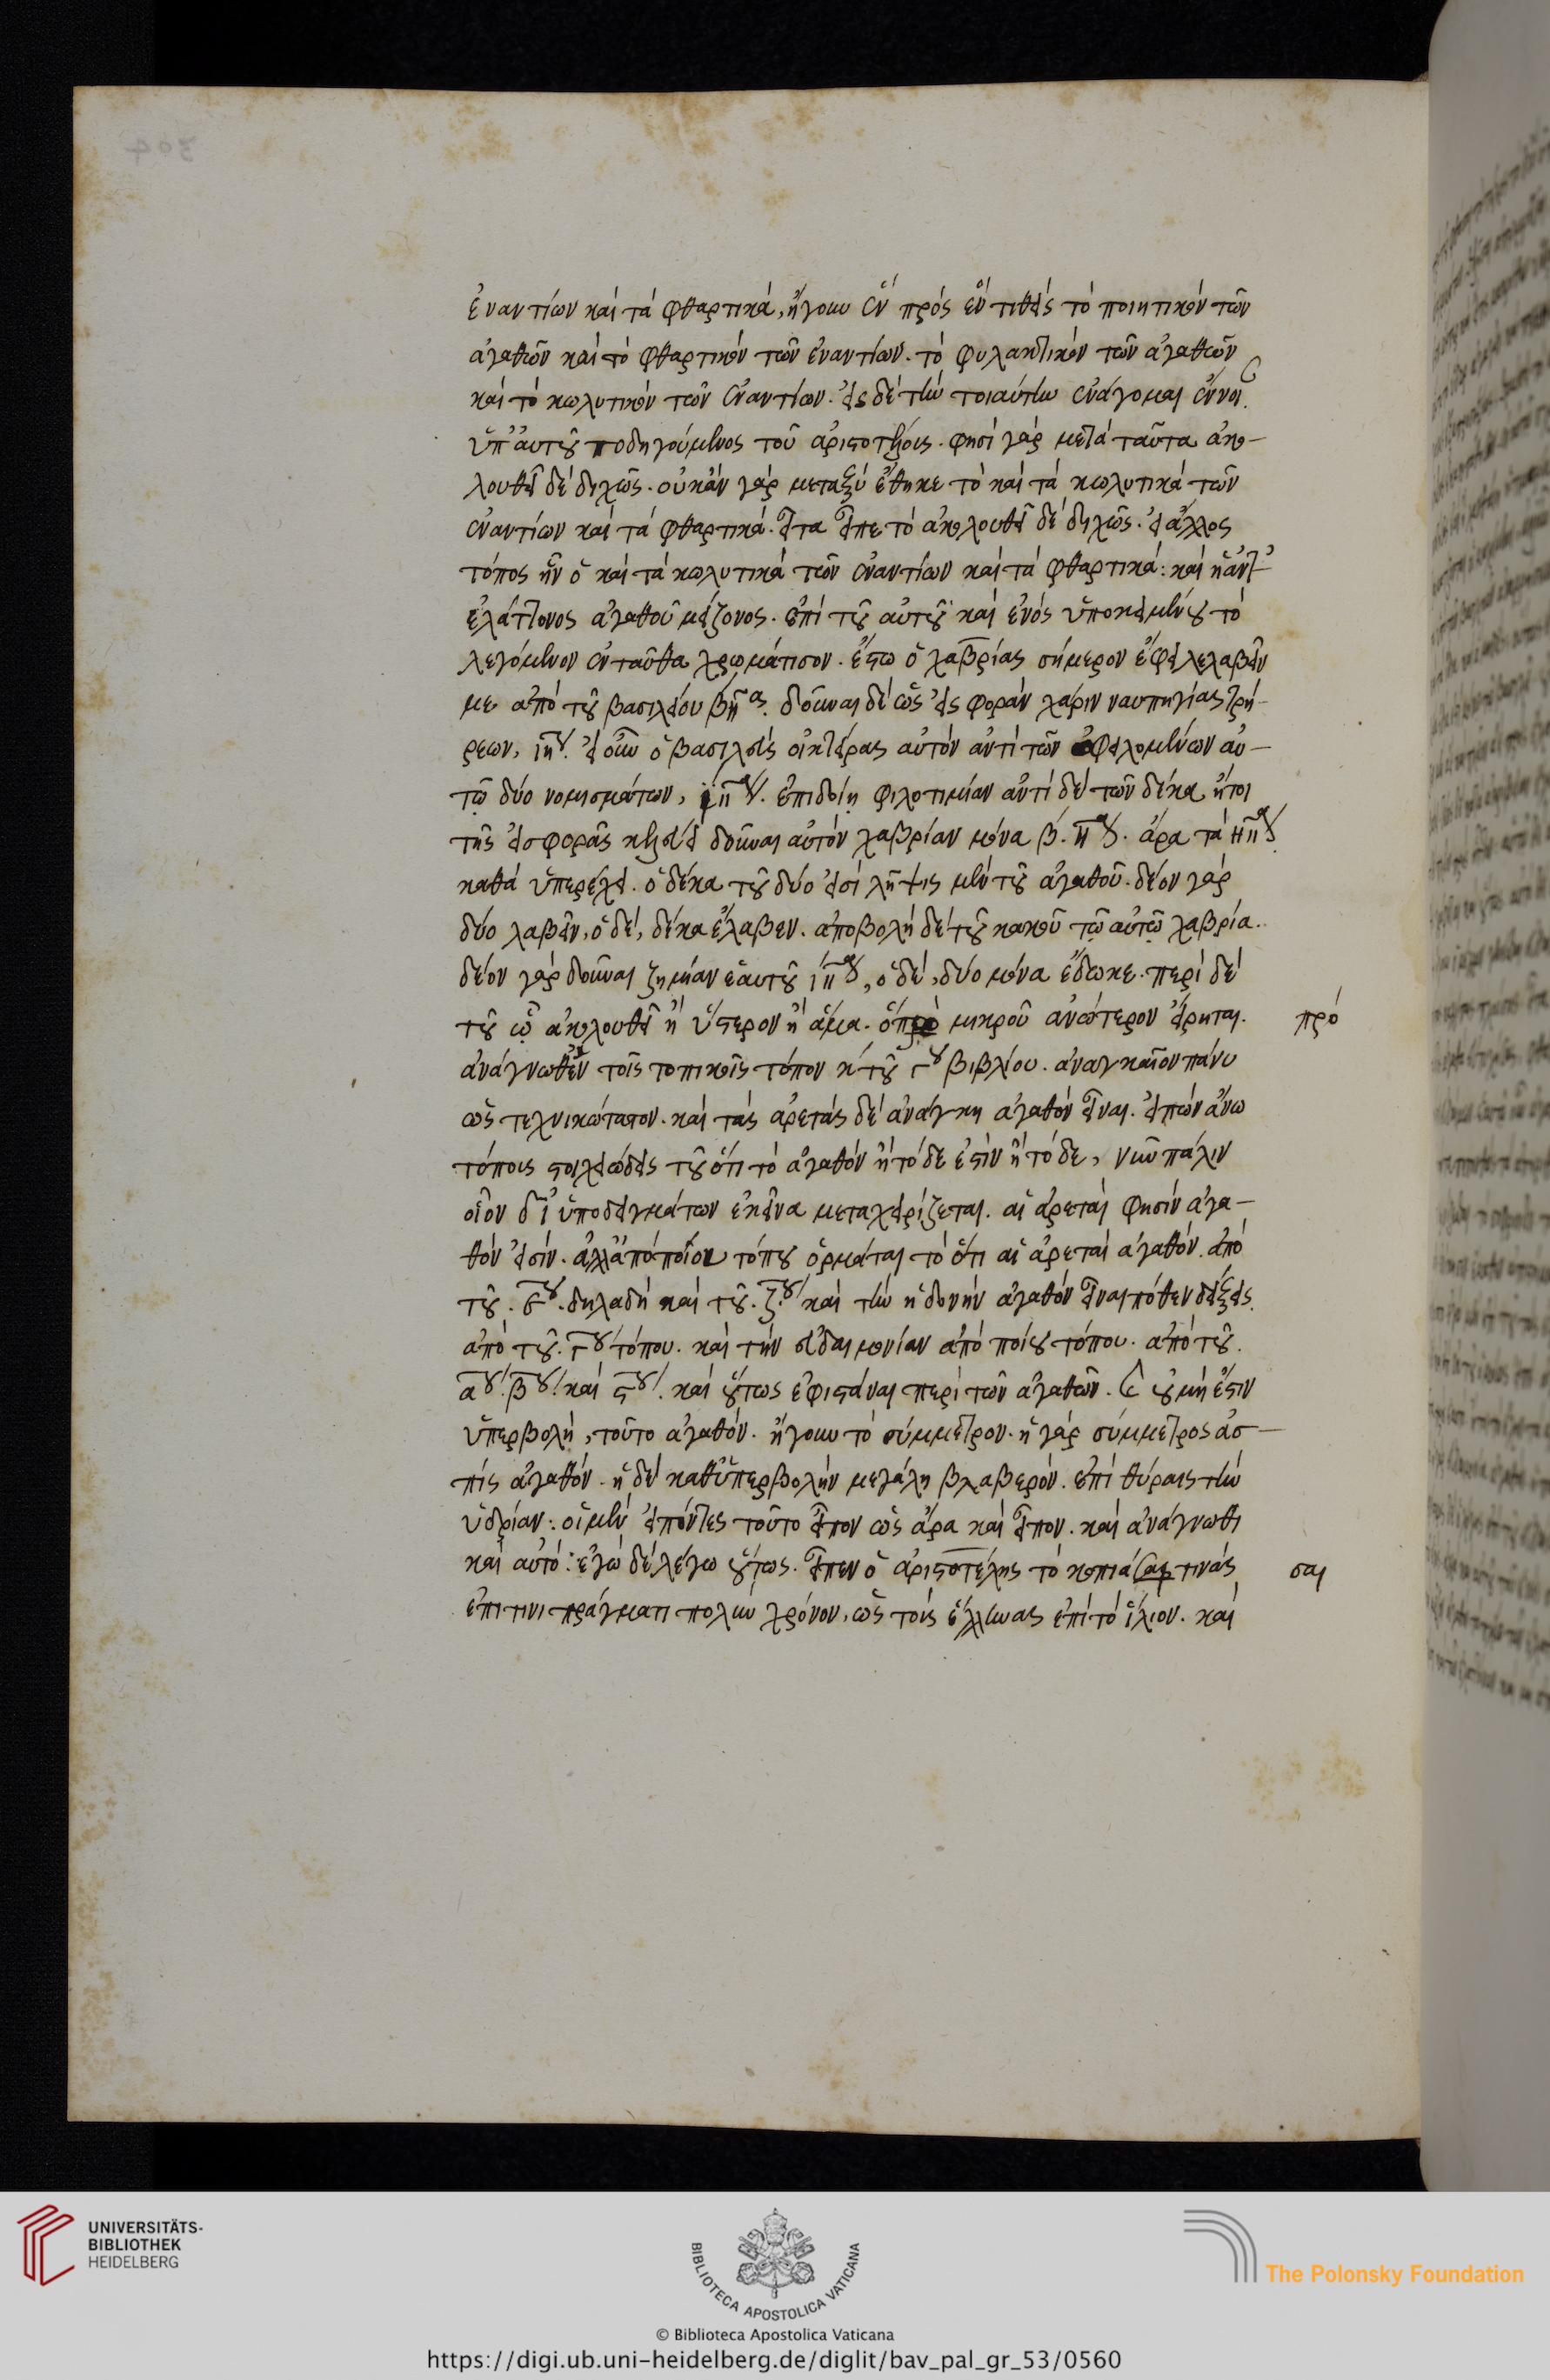 ἐναντίων καὶ τὰ φθαρτικά, ἤγουν ἓν πρὸς ἓν τιθεὶς τὸ ποιητικὸν τῶν
ἀγαθῶν καὶ τὸ φθαρτικὸν τῶν ἐναντίων. τὸ φυλακτικὸν τῶν ἀγαθῶν
καὶ τὸ κωλυτικὸν τῶν ἐναντίων. εἰς δὲ τὴν τοιαύτην ἐνάγομαι ἔννοι
ὑπ' αὐτοῦ ποδηγούμενος τοῦ ἀριστοτέλους. φησὶ γὰρ μετὰ ταῦτα ἀκο-
λουθεῖ δὲ διχῶς. οὐκ ἂν γὰρ μεταξὺ ἔθηκε τὸ καὶ τὰ κωλυτικὰ τῶν
ἐναντίων καὶ τὰ φθαρτικά. εἶτα εἶπε τὸ ἀκολουθεῖ δὲ διχῶς. εἰ ἄλλος
τόπος ἦν ὁ καὶ τὰ κωλυτικὰ τῶν ἐναντίων καὶ τὰ φθαρτικά: καὶ ἡ ἀντ'
ἐλάττονος ἀγαθοῦ μείζονος. ἐπὶ τοῦ αὐτοῦ καὶ ἑνὸς ὑποκειμένου τὸ
λεγόμενον ἐνταῦθα χρωμάτισον. ἔστω ὁ χαβρίας σήμερον ἔφειλε λαβεῖν
με ἀπὸ τοῦ βασιλείου β δοῦναι δὲ ὡς εἰς φορὰν χάριν ναυπηγίας τριή-
ρεων, εἰ οὖν ὁ βασιλεὺς οἰκτείρας αὐτὸν ἀντὶ τῶν ὀφειλομένων αὐ-
τῷ δύο νομισμάτων, ἐπιδοίη φιλοτιμίαν ἀντὶ δὲ τῶν δέκα ἤτοι
τῆς εἰσφορᾶς κελεύει δοῦναι αὐτὸν χαβρίαν μόνα β. ἄρα τὰ
καθὰ ὑπερέχει. ὁ δέκα τοῦ δύο εἰσὶ λῆψις μὲν τοῦ ἀγαθοῦ. δέον γὰρ
δύο λαβεῖν, ὁ δὲ, δέκα ἔλαβεν. ἀποβολὴ δὲ τοῦ κακοῦ τῷ αὐτῷ χαβρία.
δέον γὰρ δοῦναι ζημίαν ἑαυτοῦ ὁ δὲ, δύο μόνα ἔδωκε. περὶ δὲ
τοῦ ᾧ ἀκολουθεῖ ἢ ὕστερον ἢ ἅμα. ὅπερ μικροῦ ἀνώτερον εἴρηται. πρὸ
ἀνάγνωθι ἐν τοῖς τοπικοῖς τόπον κ τοῦ γου βιβλίου. ἀναγκαῖον πάνυ
ὡς τεχνικώτατον. καὶ τὰς ἀρετὰς δὲ ἀνάγκη ἀγαθὸν εἶναι. εἰπὼν ἄνω
τόποις στοιχειώδεις τοῦ ὅτι τὸ ἀγαθὸν ἢ τόδε ἐστὶν ἢ τόδε, νῦν πάλιν
οἷον δι' ὑποδειγμάτων ἐκεῖνα μεταχειρίζεται. αἱ ἀρεταί φησιν ἀγα-
θόν εἰσιν. ἀλλ' ἀπὸ ποίου τόπου ὁρμᾶται τὸ ὅτι αἱ ἀρεταὶ ἀγαθόν. ἀπὸ
τοῦ. εου. δηλαδὴ καὶ τοῦ. ζου καὶ τὴν ἡδονὴν ἀγαθὸν εἶναι πόθεν δείξεις.
ἀπὸ τοῦ. γου τόπου. καὶ τὴν εὐδαιμονίαν ἀπὸ ποίου τόπου. ἀπὸ τοῦ.
αου. βου. καὶ ςου. καὶ οὕτως ἐφιστάναι περὶ τῶν ἀγαθῶν. οὗ μή ἐστιν
ὑπερβολή, τοῦτο ἀγαθόν. ἤγουν τὸ σύμμετρον. ἡ γὰρ σύμμετρος ἀσ-
πὶς ἀγαθόν. ἡ δὲ καθ' ὑπερβολὴν μεγάλη βλαβερόν. ἐπὶ θύραις τὴν
ὑδρίαν: οἱ μὲν εἰπόντες τοῦτο εἶπον ὡς ἄρα καὶ εἶπον. καὶ ἀνάγνωθι
καὶ αὐτό: ἐγὼ δὲ λέγω οὕτως. εἶπεν ὁ ἀριστοτέλης τὸ κοπιάσαι τινὰς σαι
ἐπί τινι πράγματι πολὺν χρόνον, ὡς τοὺς ἕλληνας ἐπὶ τὸ ἴλιον. καὶ
UNIVERSITÄTS-
BIBLIOTHEK
HEIDELBERG
BIBLIOTECA APOSTOLICA VATICANA
The Polonsky Foundation
© Biblioteca Apostolica Vaticana
https://digi.ub.uni-heidelberg.de/diglit/bav_pal_gr_53/0560